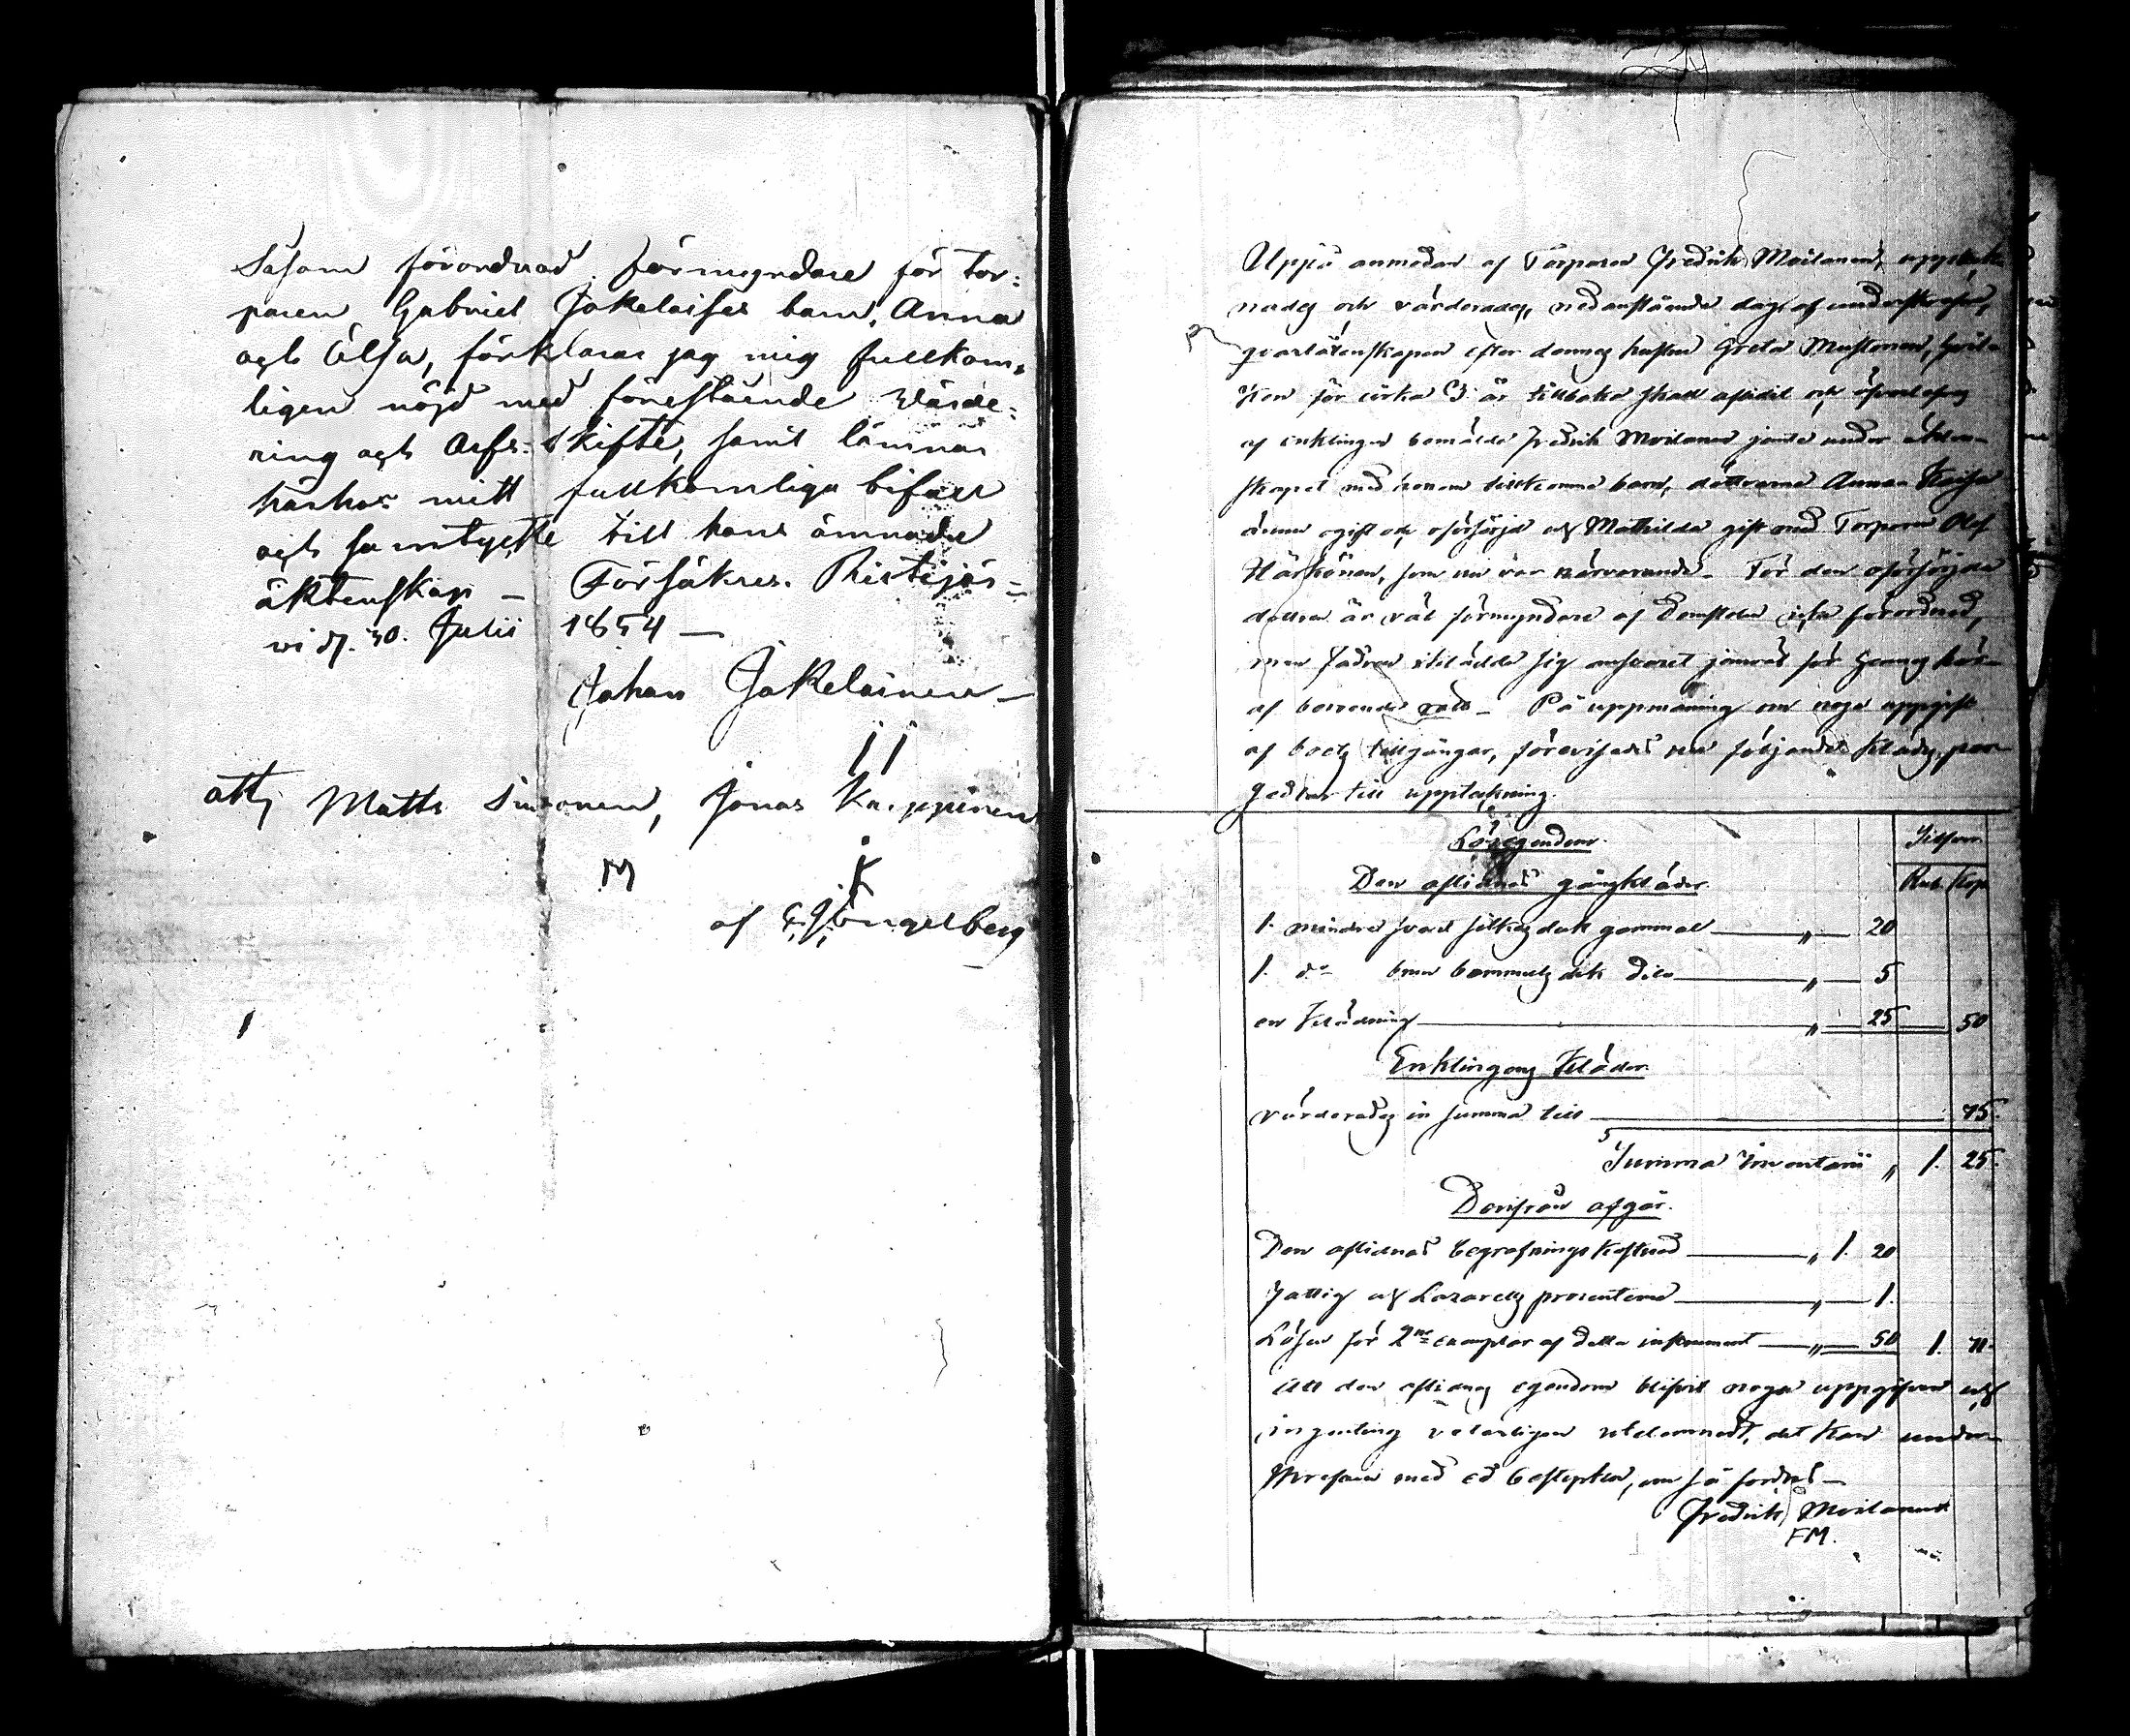 Såsom förordnad förmyndare för tor-
paren Gabriel Jakelaises barn, Anna
och Elsa, förklarar jag mig fullkom-
ligen nöjd med förestående värde-
ring och Arfs-skifte, samt lämnar
härhos mitt fullkomliga bifall
och samtycke till hans ämnade
äktenskap – Försäkras. Ristijär-
vi d. 30. Julii 1854 –
Johan Jakelainen –
JJ
att, Matts Simonen, Jonas Kemppinen
M K
af E.J. Engelberg
Uppå anmodan af Torparen Fredrik Moilanen, uppteck-
nades och värderades, nedanstående dag, af
qvarlåtenskapen efter dennes hustru Greta Mustonen, hvil-
ken för cirka 3 år tillbaka skall aflidit och
af enklingen bemälde Fredrik Moilanen jemte under äkten-
skapet med honom tillkomne barn, döttrarne Anna Kaisa
ännu ogift och oförsörjd och Mathilda gift med Torparen Olof
Härkönen, som nu var närvarande – För den oförsörjda
dottren är väl förmyndare af Domstolen förordnad,
men fadren sig ansvaret jemväl för
af – På uppmaning om noga uppgift
af boets tillgångar, förevisades nu följande klädes per-
sedlar till uppteckning.
Lösegendom. Silfver
Den aflidnas gångkläder. Rub. Kop.
1. mindre svart silkesduk gammal — „ — 20
1. do brun bommulls duk dito — „ — 5
en klädning — „ — 25 — 50
Enklingens kläder
värderades in summa till — 75.
Summa Inventarii „ 1. 25.
Derifrån afgår.
Den aflidnas begrafningskostnad — „ 1. 20
Fattig och Lazaretts procenterne — „ — 1.
Lösen för 2ne exemplar af detta instrument — „ — 50 1. 71.
Att den aflidnes egendom blifvit noga uppgifven och
ingenting veterligen utelemnadt, det kan under
med ed bestyrkas, om så fordras –
Fredrik Moilanen
FM.